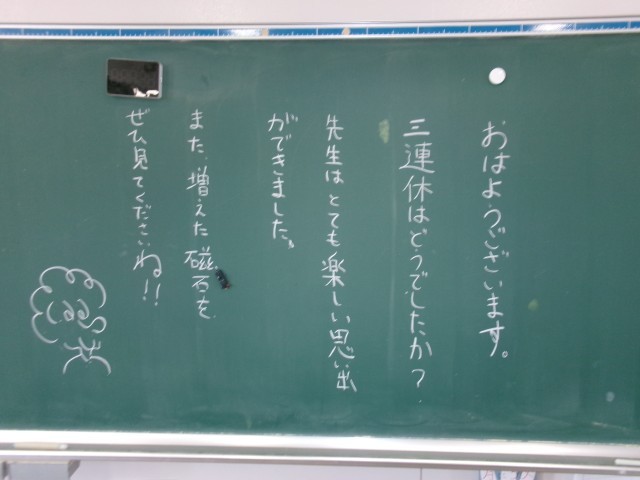 おはようございます。
三連休はどうでしたか？
先生はとても楽しい思い出
ができました。
また、増えた磁石を
ぜひ見てくださいね!!